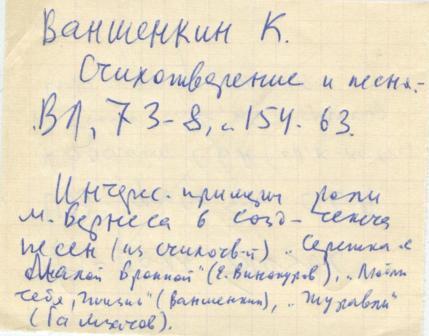 Ваншенкин К.
Стихотворение и песня.–
ВЛ, 73–8, с. 154–63.
Интерес. пример роли
М. Бернеса в созд–
песен (из стихотв-й) „Сережка с
Малой Бронной“ (Е. Винокуров), „Люблю
тебя, жизнь“ (Ваншенкин), „Журавли“
(Гамзатов).